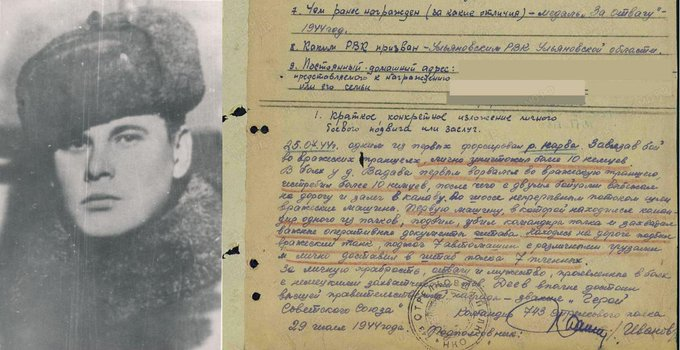 7. Чем ранее награжден (за какие отличия) – медаль „За отвагу" –
1944 год.
8. Каким РВК призван – Ульяновским РВК Ульяновской области.
9. Постоянный домашний адрес:
представляемого к награждению
или его семьи
1. Краткое конкретное изложение личного
боевого подвига или заслуг.
25.07.44г. одним из первых форсировал р. Нарва. Завязав бой
во вражеских траншеях, лично уничтожил более 10 немцев.
В боях у д. Вадава первым ворвался во вражескую траншею,
истребил более 10 немцев, после чего с двумя бойцами
на дорогу и залег в канаву. По шоссе непрерывным потоком шли
вражеские машины. Первую машину, в которой находился коман-
дир одного из полков, подбил, убил командира полка и захватил
важные оперативные документы штаба. Находясь на дороге подбил
вражеский танк, поджог 7 автомашин с различными грузами
и лично доставил в штаб полка 7 пленных.
За личную храбрость, отвагу и мужество, проявленные в боях
с немецкими захватчиками тов. Деев вполне достоин
высшей правительственной награды – звания „Герой
Советского Союза"
Командир 743 стрелкового полка
29 июля 1944 года. Подполковник: Иванов